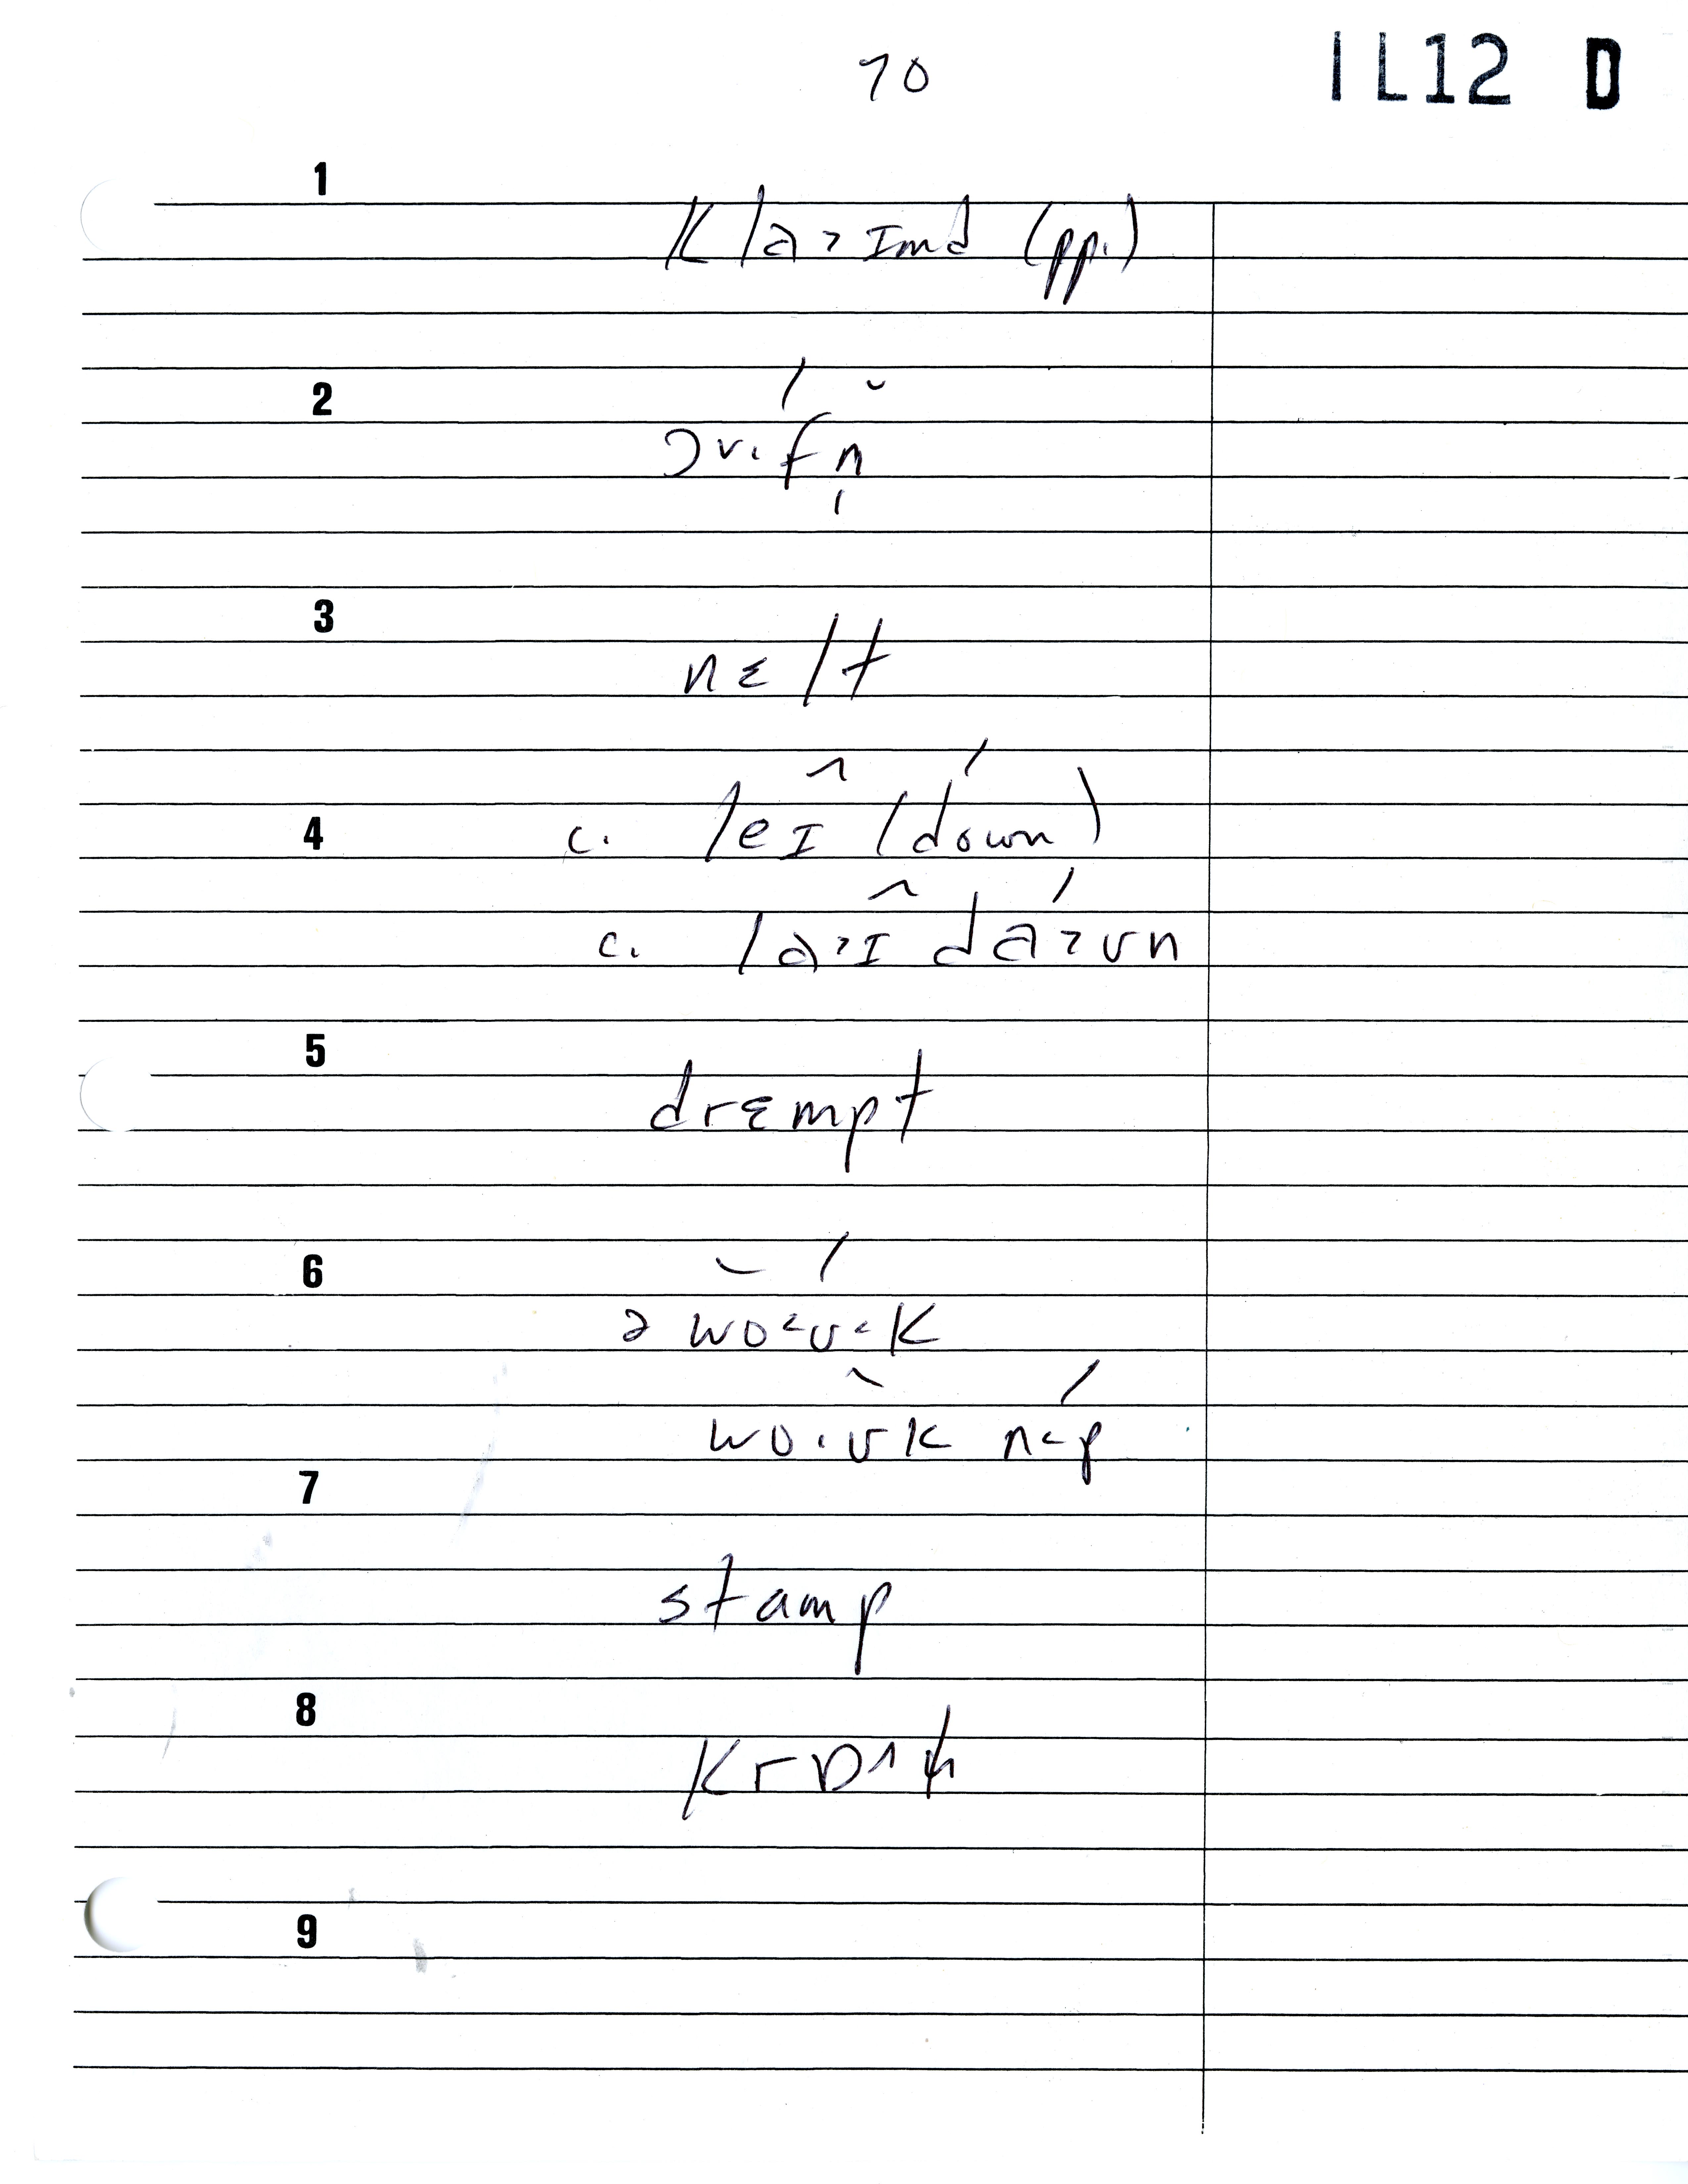 70 IL12 D
1
Kla˃ɪmd (pp.)
2
ɔr˖fn̩
3
nɛlt
4
c. leɪ (down)
c. la˃ɪ da˃ʊn
5
drɛmpt
6
ə wo˂ʊ˂k
wo·ʊk ʌ˂p
7
stamp
8
Krɒ˄tʃ
9